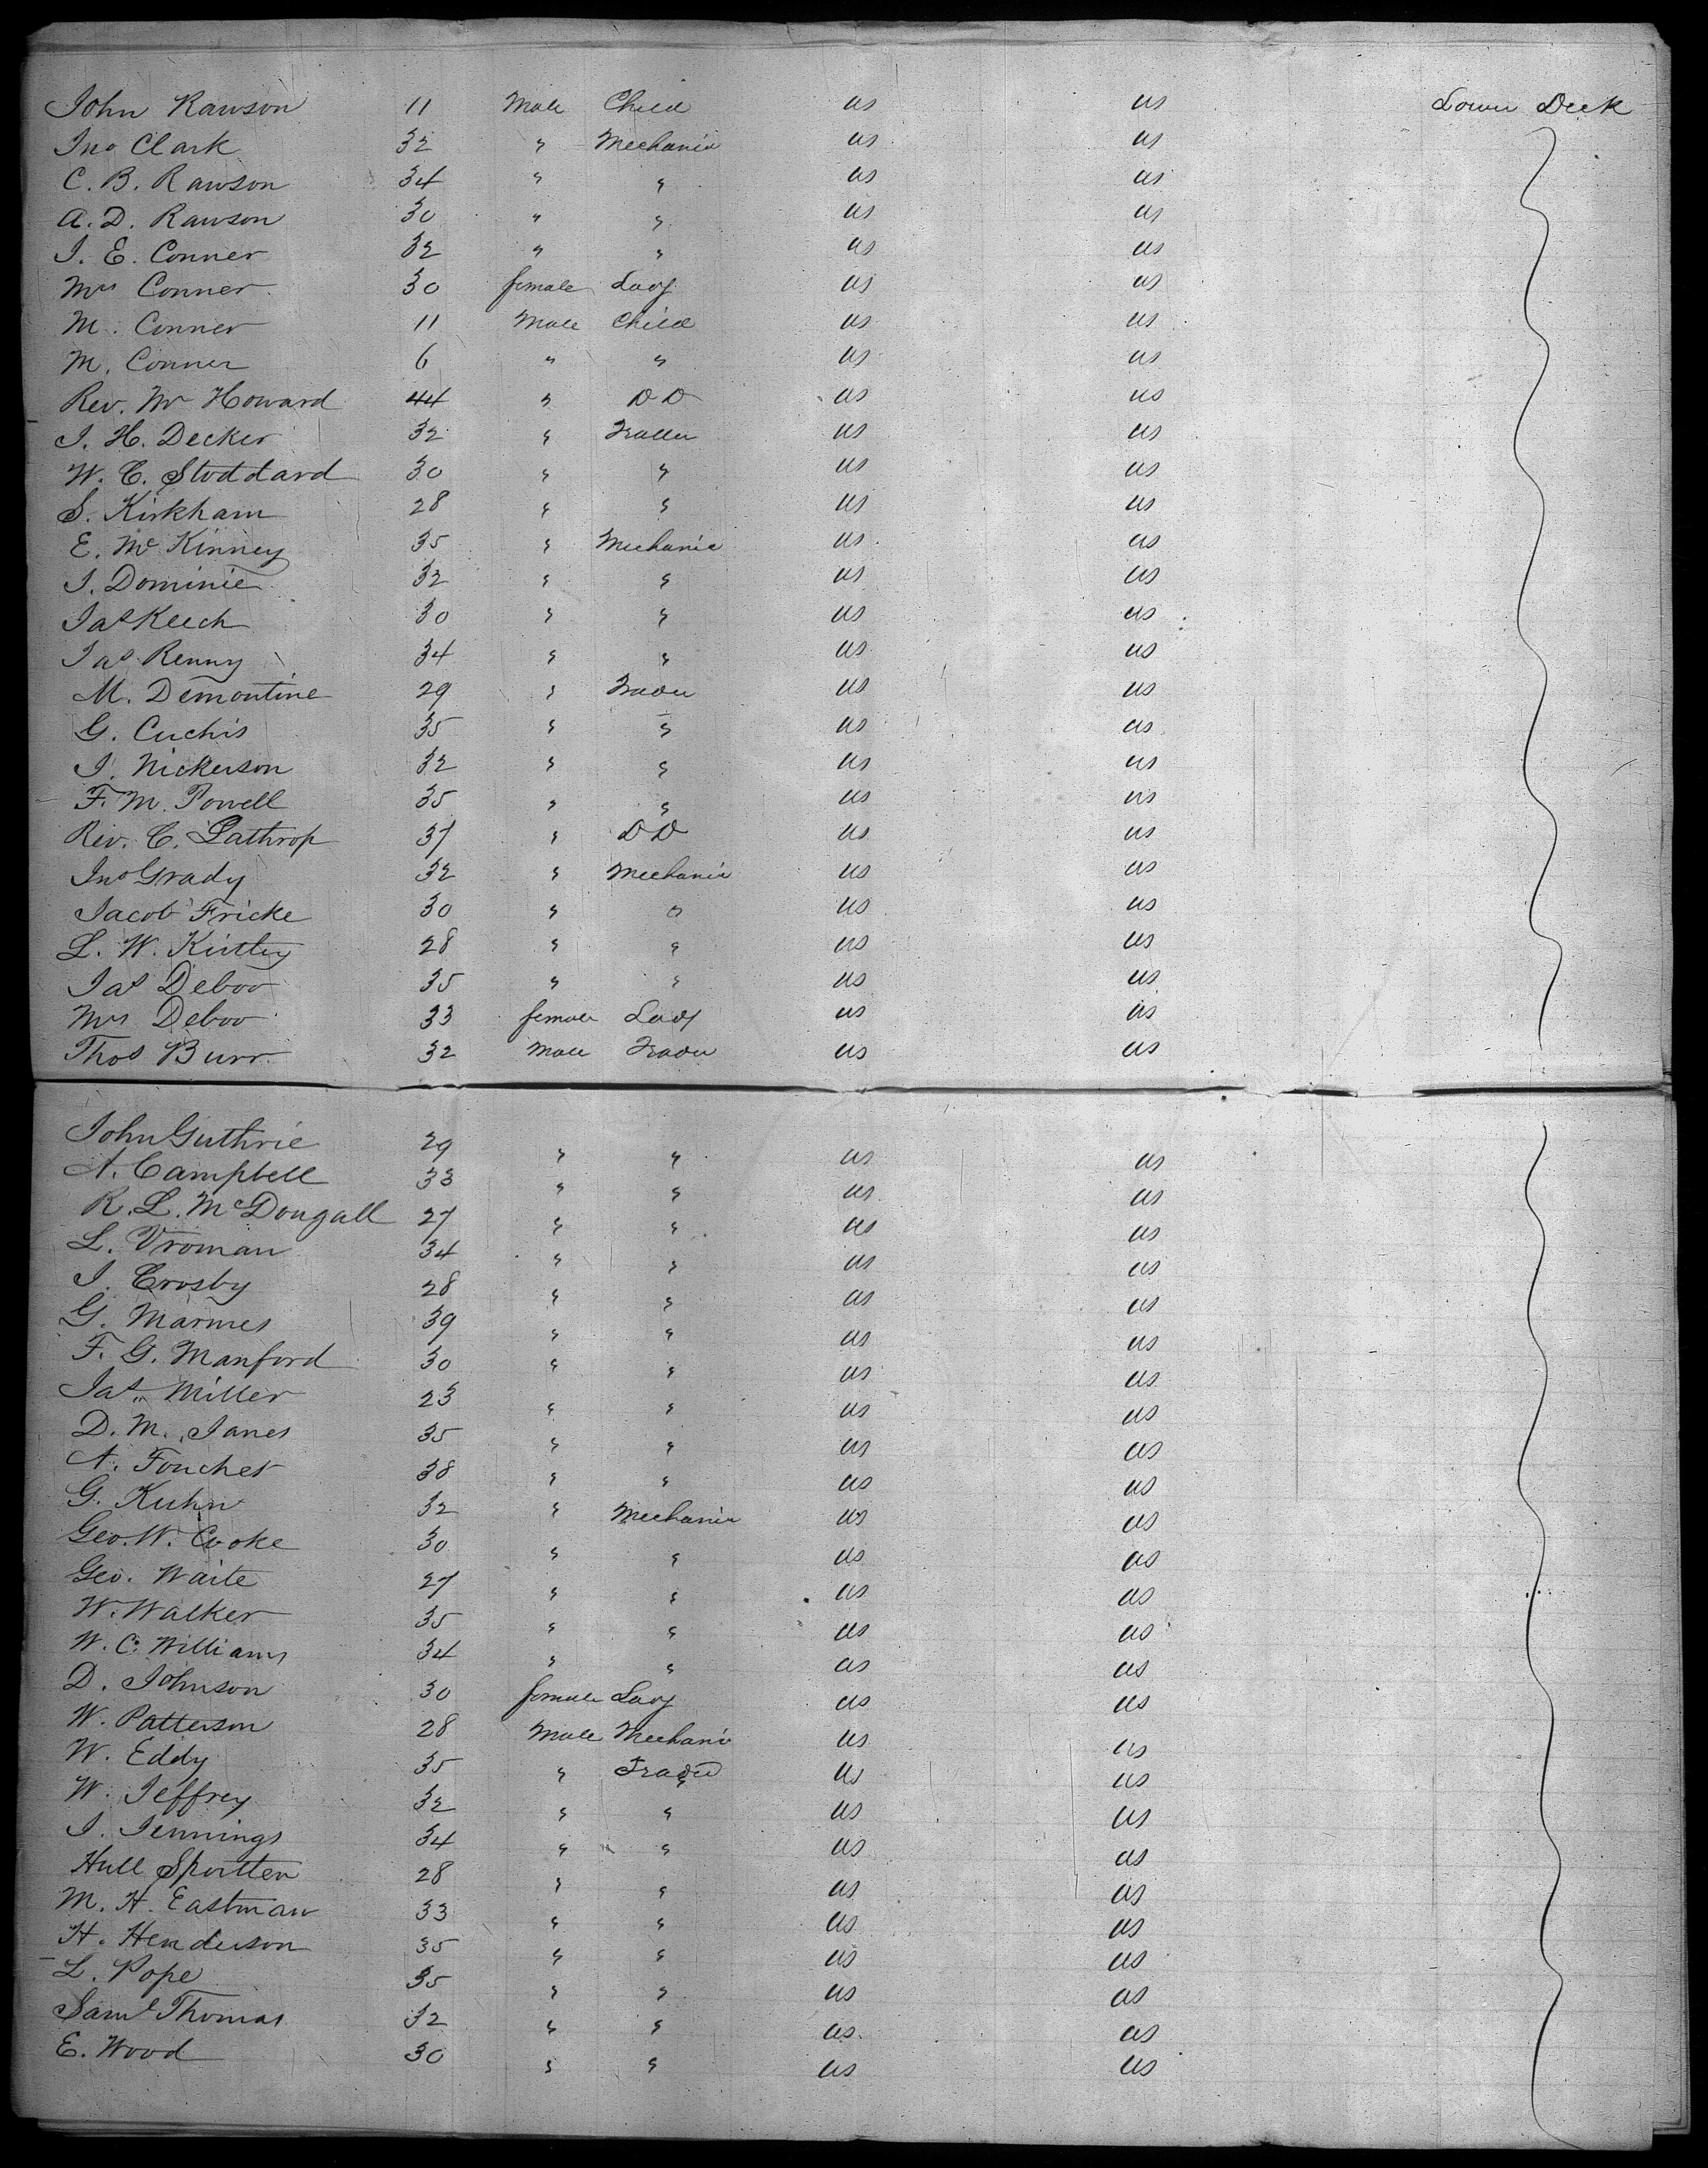 John Rawson 11 Male Child US US Lower Deck
Jno Clark 32 " Mechanic US US
C. B. Rawson 34 " " US US
A. D. Rawson 30 " " US US
J. E. Conner 32 " " US US
Mrs Conner 30 female Lady US US
M. Conner 11 Male Child US US
M. Conner 6 " " US US
Rev. Mr Howard 44 " DD US US
J. H. Decker 32 " Trader US US
W. C. Stoddard 30 " " US US
S. Kirkham 28 " " US US
E. Mc Kinney 35 " Mechanic US US
J. Dominie 32 " " US US
Jas Keech 30 " " US US
Jas Renny 34 " " US US
M. Demontine 29 " Trader US US
G. Cuchis 35 " " US US
J. Nickerson 32 " " US US
F. M. Powell 35 " " US US
Rev. C. Lathrop 37 " DD US US
Jno Grady 32 " Mechanic US US
Jacob Fricke 30 " " US US
L. W. Kirtley 28 " " US US
Jas Deboo 35 " " US US
Mrs Deboo 33 female Lady US US
Thos Burr 32 Male Trader US US
John Guthrie 29 " " US US
A. Campbell 33 " " US US
R. L. McDougall 27 " " US US
L. Vroman 34 " " US US
J. Crosby 28 " " US US
G. Marmes 39 " " US US
F. G. Manford 30 " " US US
Jas. Miller 23 " " US US
D. M. Janes 35 " " US US
A. Fouchet 38 " " US US
G. Kuhn 32 " Mechanic US US
Geo. W. Cooke 30 " " US US
Geo. Waite 27 " " US US
W. Walker 35 " " US US
W. C. Williams 34 " " US US
D. Johnson 30 female Lady US US
W. Patterson 28 Male Mechanic US US
W. Eddy 35 " Trader US US
W. Jeffrey 32 " " US US
J. Jennings 34 " " US US
Hull Sportten 28 " " US US
M. H. Eastman 33 " " US US
H. Henderson 35 " " US US
L. Pope 35 " " US US
Saml Thomas 32 " " US US
E. Wood 30 " " US US